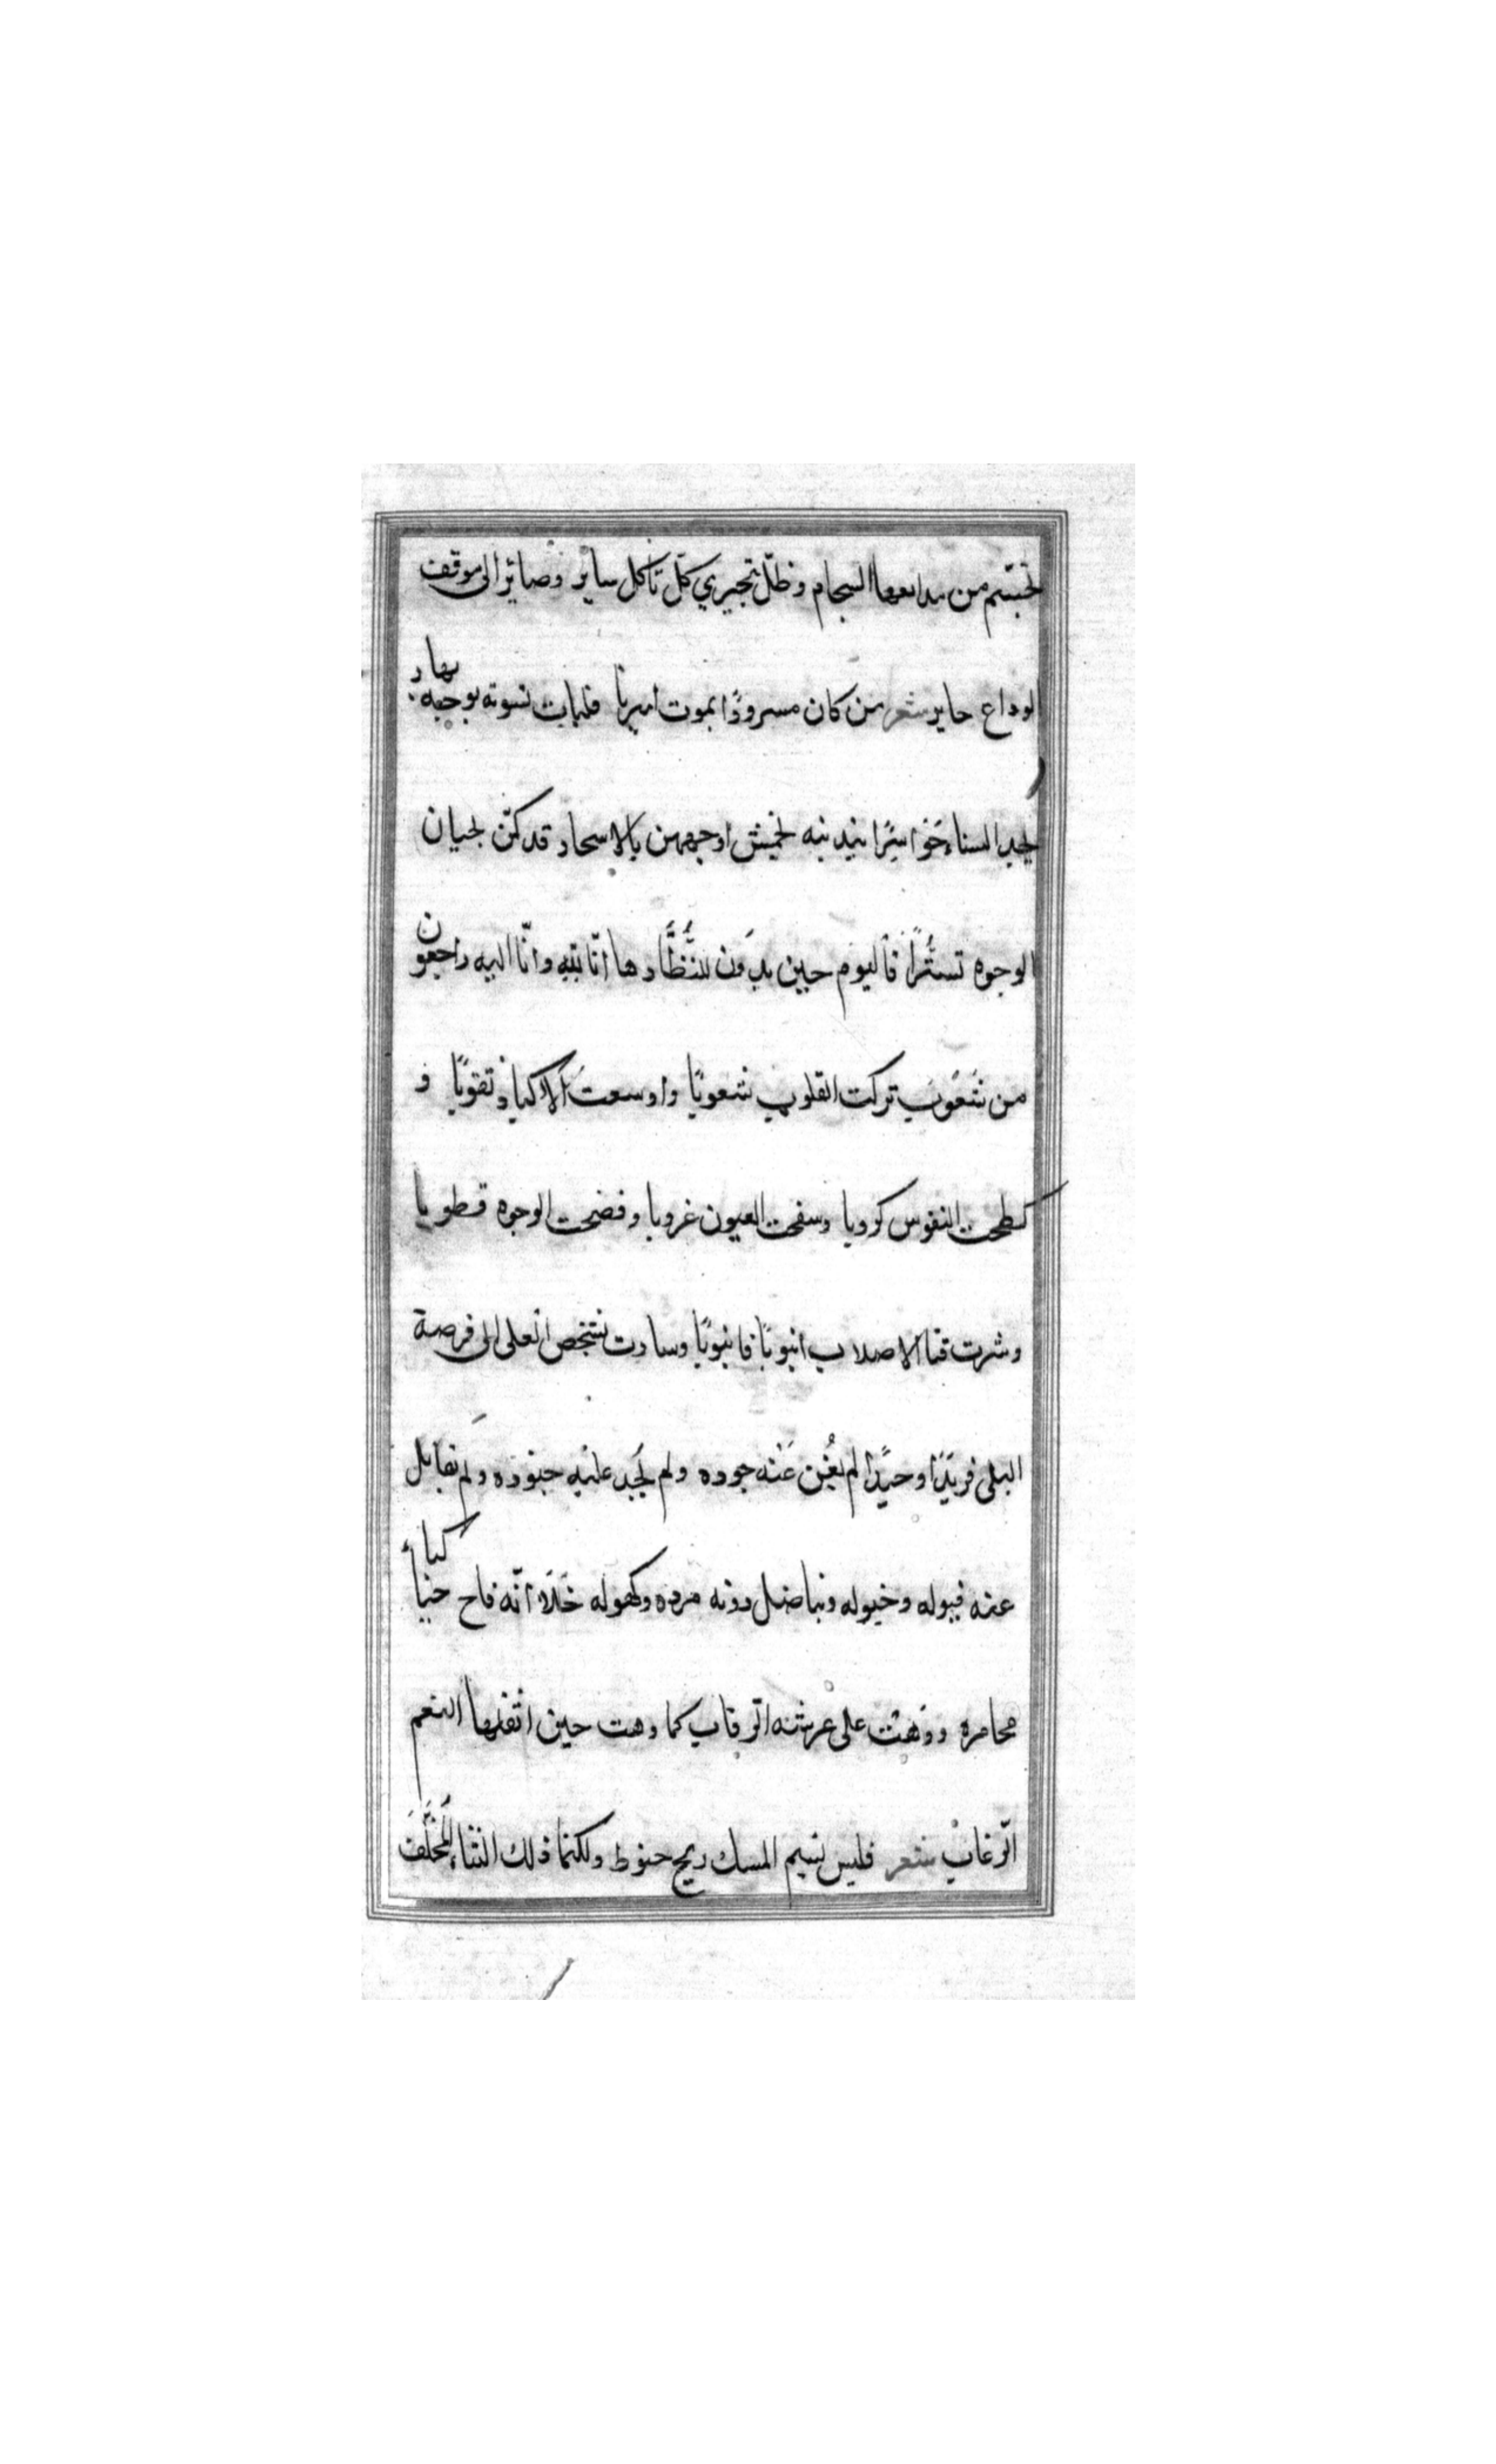 تجسّم من مدامعها السجام وظلّ تجيري كلّ تاكل ساير وصائرا الى موقف
الوداع حاير شعر من كان مسرورًا بموت اميرنا فليات نسوته بوجه نهار
يجد النساء حَوَاسِرًا يندبنه يخمش اوجههن بالاسحار قد كنّ يخبان
الوجوه تستُّرًا فاليوم حين بدَون للنُّظَّار ها انّا لله وانّا اليه راجعون
من شَعُوب تركت القلوب شعوبًا واوسعت الاكباد ثقوبًا و
كظحت النفوس كروبا وسفحت العيون غروبا وفضحت الوجوه قطوبا
ونثرت قنا الاصلاب انبوبًا فانبوبًا وسارت بشخص العلى الى فرصة
البلى فريدًا وحيدًا لم يُغن عَنه جوده ولم يُجد عليه جنوده ولم يقابل
عنه فيوله وخيوله ويناضل دونه مرده وكهوله خَلَا انّه فاح كباء
محامره ووَهَت على عرشه الرقاب كما وهت حين اثقلها النعم
الرّغاب شعر فليس نسيم المسك ريح حنوط ولكنما ذلك الثناء المُخَلَّف